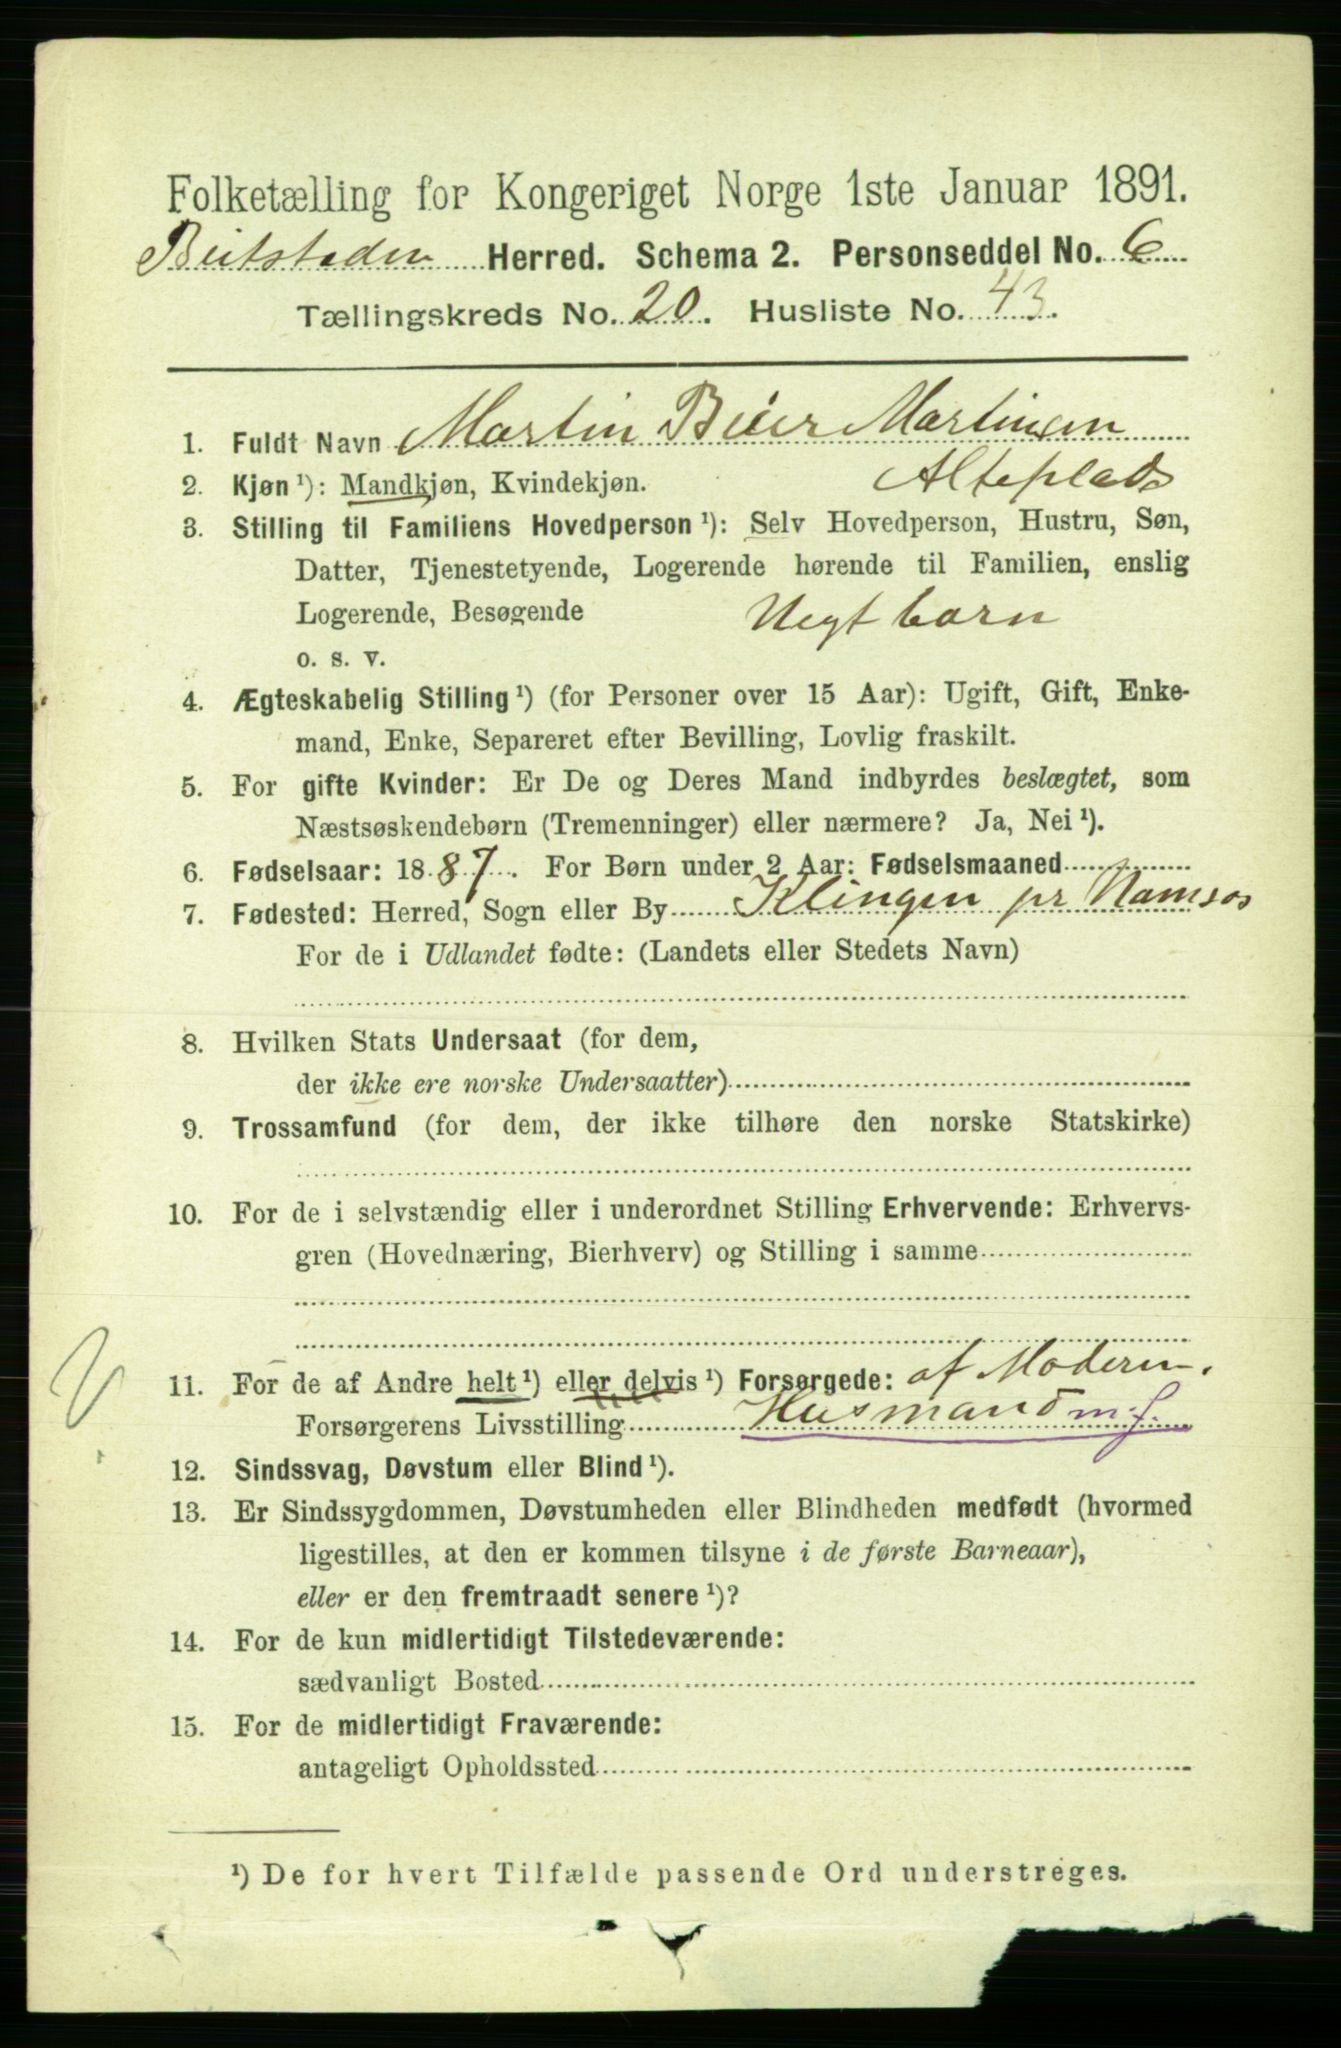 Folketælling for Kongeriget Norge 1ste Januar 1891.
Beitstaden Herred. Schema 2. Personseddel No. 6
Tællingskreds No. 20. Husliste No. 43.
1. Fuldt Navn Martin Beier Martinsen
2. Kjøn ¹): Mandkjøn, Kvindekjøn. Alteplads
3. Stilling til Familiens Hovedperson ¹): Selv Hovedperson, Hustru, Søn,
Datter, Tjenestetyende, Logerende hørende til Familien, enslig
Logerende, Besøgende Uegt barn
o. s. v.
4. Ægteskabelig Stilling ¹) (for Personer over 15 Aar): Ugift, Gift, Enke-
mand, Enke, Separeret efter Bevilling, Lovlig fraskilt.
5. For gifte Kvinder: Er De og Deres Mand indbyrdes beslægtet, som
Næstsøskendebørn (Tremenninger) eller nærmere? Ja, Nei ¹).
6. Fødselsaar: 1887. For Børn under 2 Aar: Fødselsmaaned
7. Fødested: Herred, Sogn eller By Klingen pr Namsos
For de i Udlandet fødte: (Landets eller Stedets Navn)
8. Hvilken Stats Undersaat (for dem,
der ikke ere norske Undersaatter)
9. Trossamfund (for dem, der ikke tilhøre den norske Statskirke)
10. For de i selvstændig eller i underordnet Stilling Erhvervende: Erhvervs-
gren (Hovednæring, Bierhverv) og Stilling i samme
11. For de af Andre helt ¹) eller delvis ¹) Forsørgede: af Moderen.
Forsørgerens Livsstilling Husmand m. f.
12. Sindssvag, Døvstum eller Blind ¹).
13. Er Sindssygdommen, Døvstumheden eller Blindheden medfødt (hvormed
ligestilles, at den er kommen tilsyne i de første Barneaar),
eller er den fremtraadt senere ¹)?
14. For de kun midlertidigt Tilstedeværende:
sædvanligt Bosted
15. For de midlertidigt Fraværende:
antageligt Opholdssted
¹) De for hvert Tilfælde passende Ord understreges.